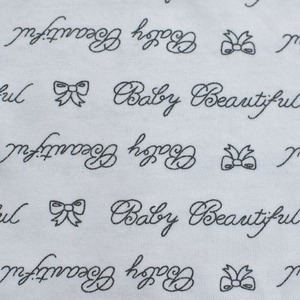 Baby Beautiful
Baby Beautiful
Baby Beautiful
Baby Beautiful
Baby Beautiful